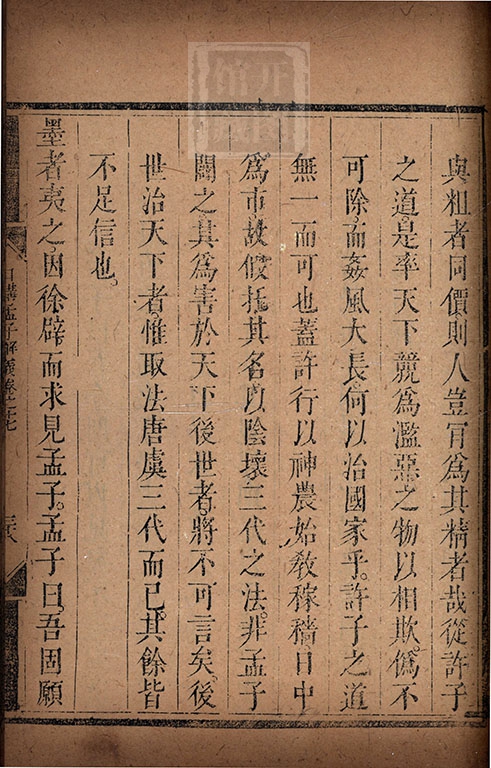 與粗者同價則人豈肎爲其精者哉從許子
之道是率天下競爲濫惡之物以相欺僞不
可除而姦風大長何以治國家乎許子之道
無一而可也蓋許行以神農始敎稼穡日中
爲市故假托其名以陰壞三代之法非孟子
闢之其爲害於天下後世者將不可言矣後
世治天下者惟取法唐虞三代而已其餘皆
不足信也
墨者夷之因徐辟而求見孟子孟子曰吾固願
日講孟子解義卷